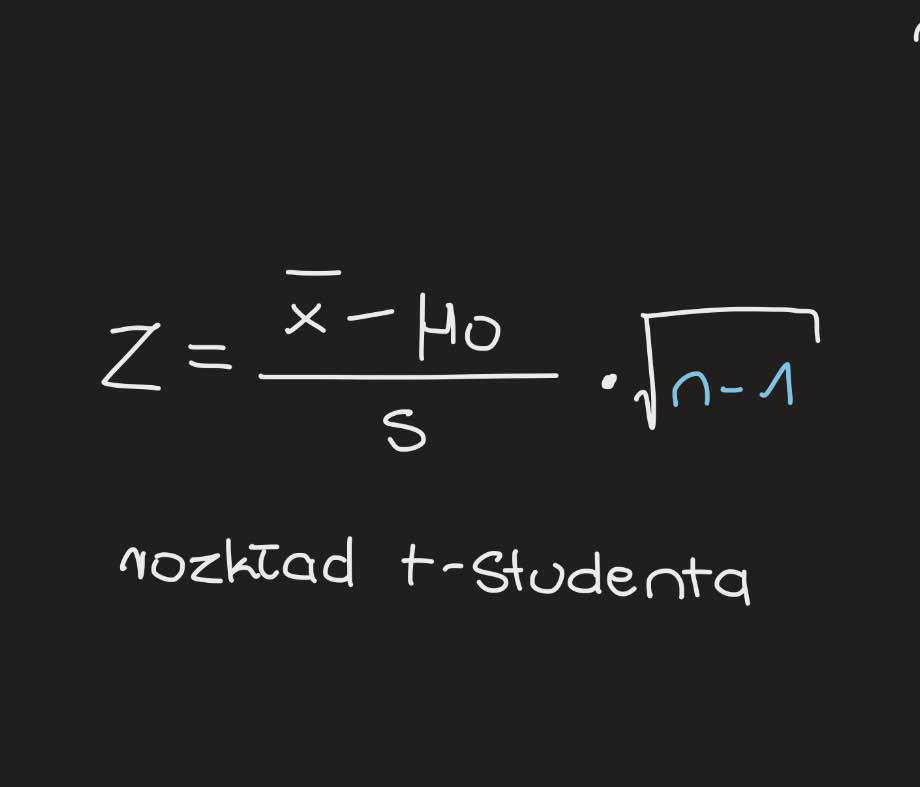 Z = \frac{\overline{x} - μ0}{s} · \sqrt{n-1}
rozkład t-Studenta